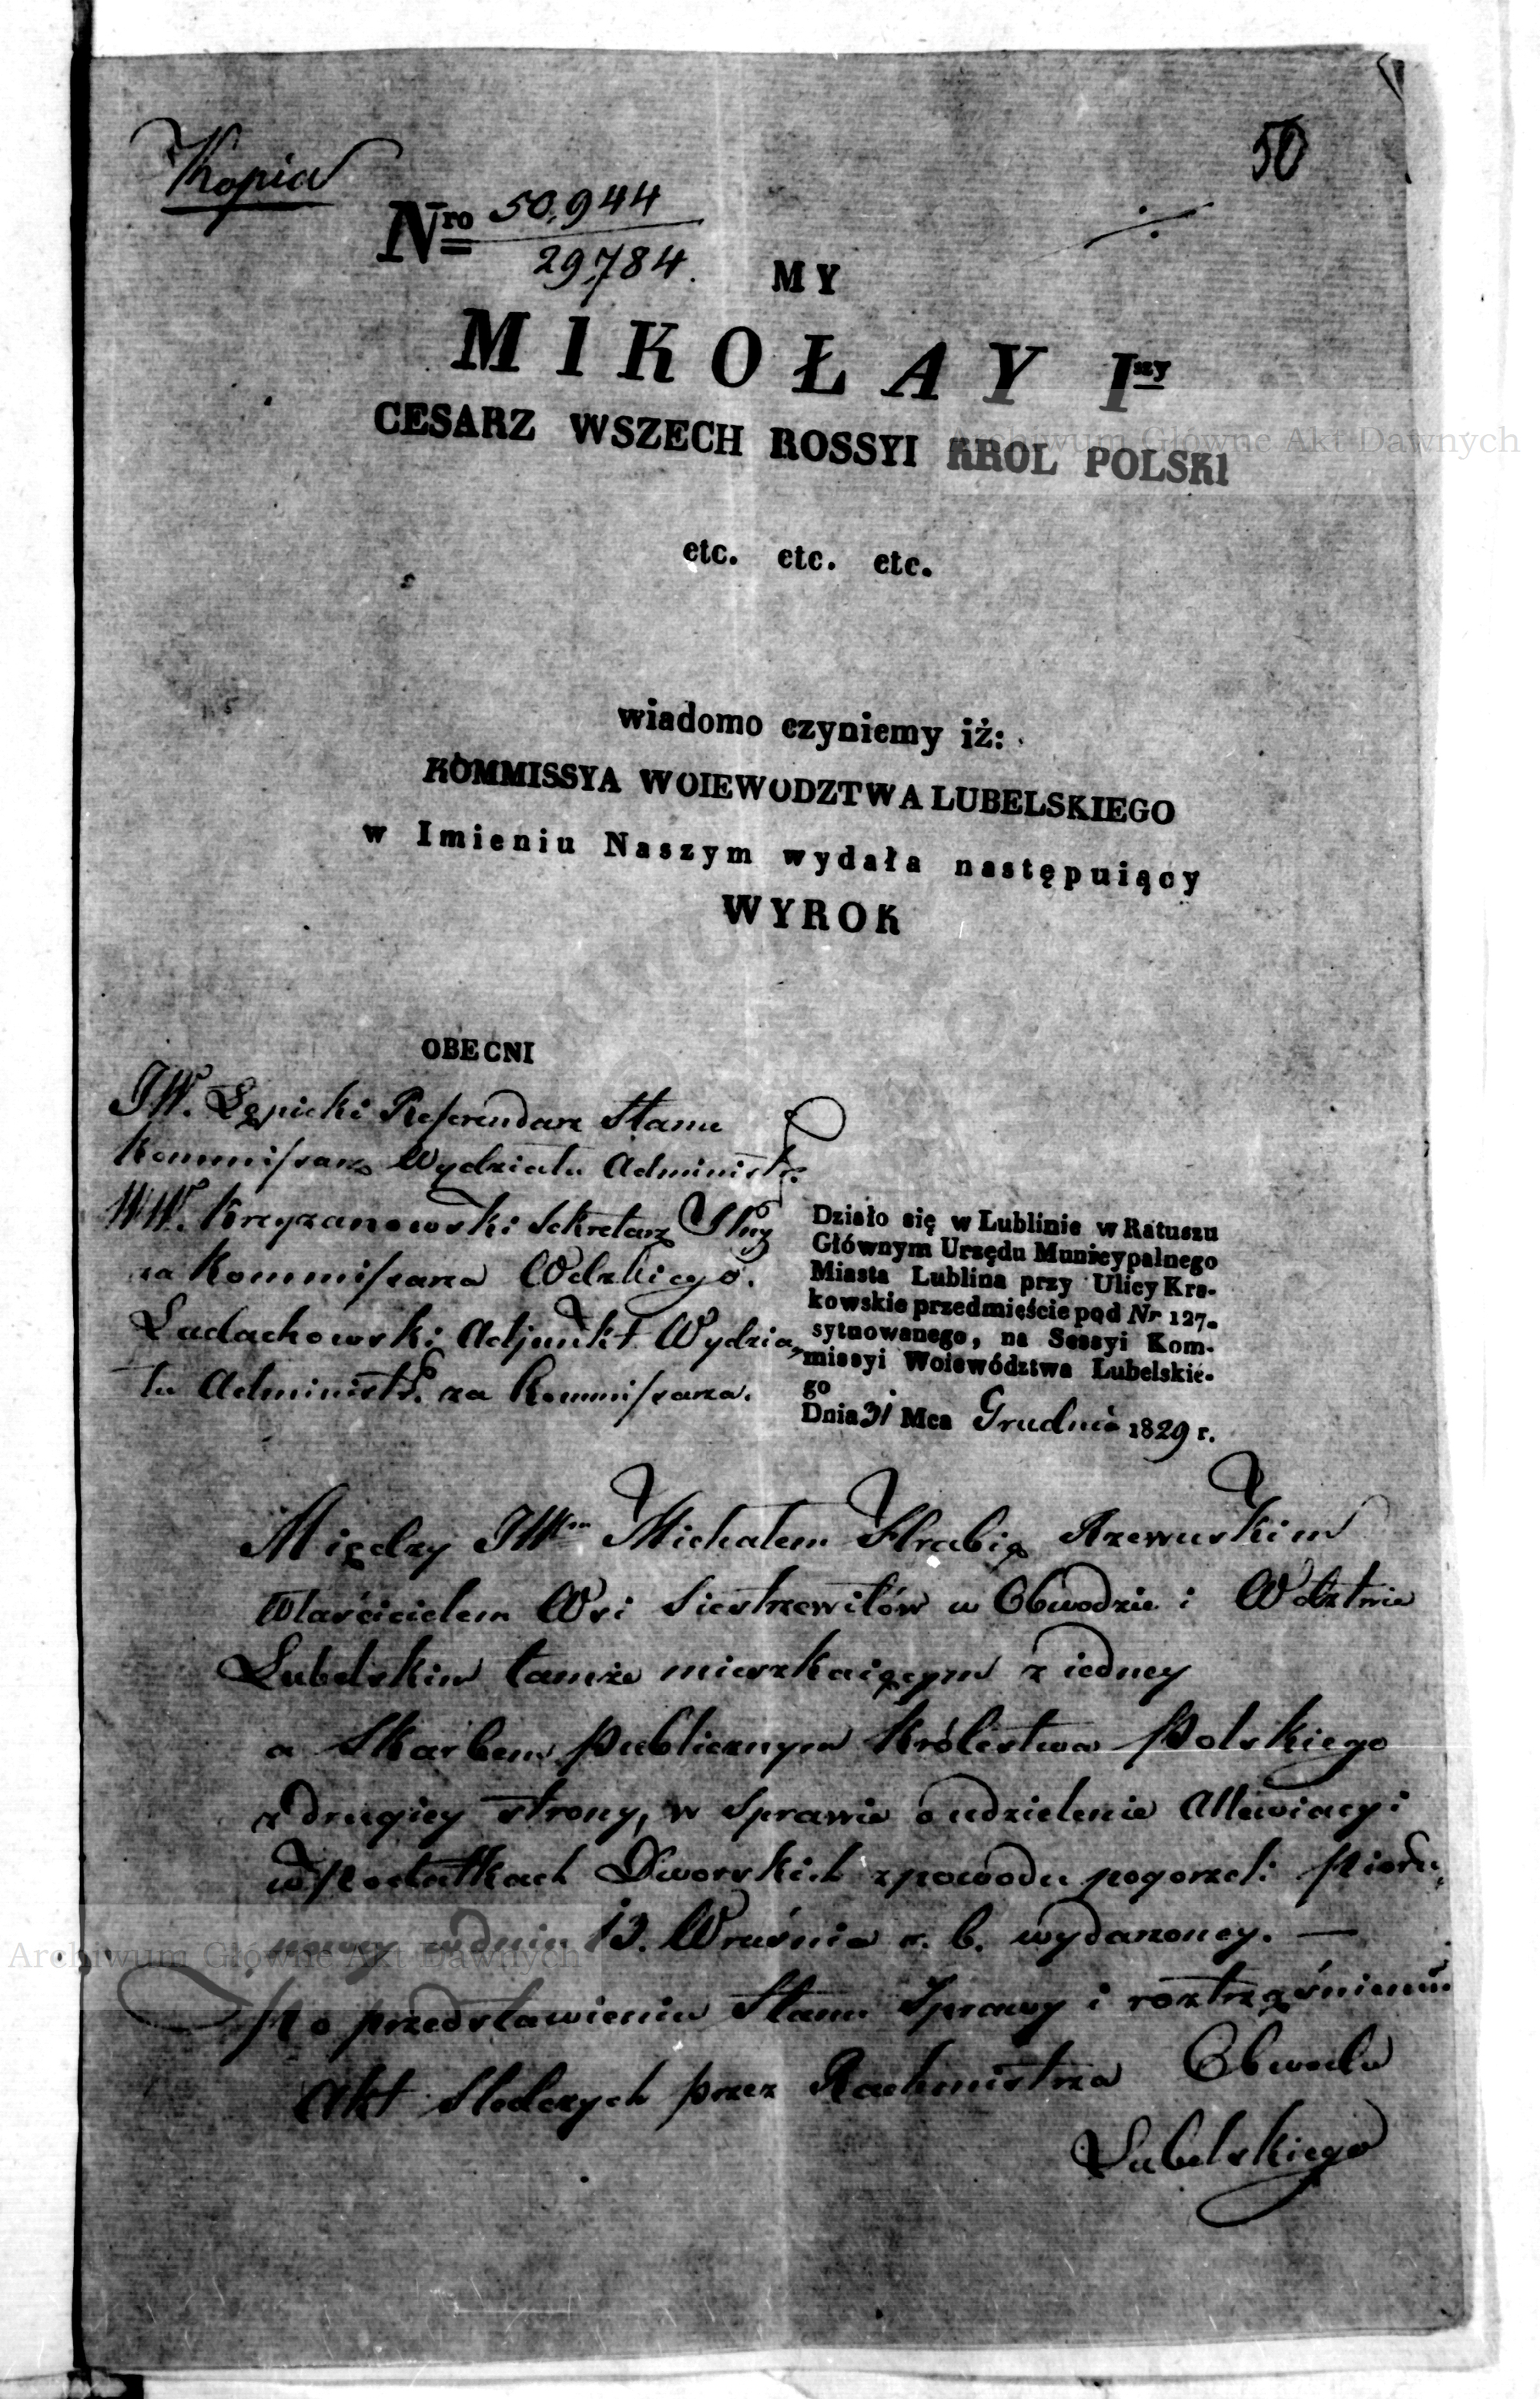 Kopia
50
Nro 50,944
29,784.
MY
MIKOŁAY Iszy
CESARZ WSZECH ROSSYI KROL POLSKI
etc. etc. etc.
wiadomo czyniemy iż:
KOMMISSYA WOIEWODZTWA LUBELSKIEGO
w Imieniu Naszym wydała następuiący
WYROK
OBECNI
JW. Łępicki Referendarz Stanu
Kommissarz Wydziału Administr.
WW. Krzyzanowski Sekretarz
za Kommissarza Wdzkiego.
Ladachowski Adjunkt Wydzia
łu Administr. za Kommissarza.
Działo się w Lublinie w Ratuszu
Głównym Urzędu Municypalnego
Miasta Lublina przy Ulicy Kra-
kowskie przedmieście pod Nr 127.
sytuowanego, na Sessyi Kom-
missyi Woiewództwa Lubelskie-
go
Dnia 31 Mca Grudnia 1829 r.
Między JWm Michałem Hrabią Rzewuskim
Właścicielem Wsi Siestrzewitów w Obwodzie i Wdztwie
Lubelskim tamże mieszkaiącym z iedney
a Skarbem Publicznym Królestwa Polskiego
z drugiey strony, w sprawie o udzielenie Allewiacyi
w Podatkach Dworskich z powodu pogorzeli Pioru,
nowey w dniu 13. Września r. b. wydarzoney. —
Po przedstawieniu Stanu Sprawy i roztrząśnieniu
Akt Sledczych przez Rachmistrza Obwodu
Lubelskiego
Archiwum Główne Akt Dawnych
Archiwum Główne Akt Dawnych